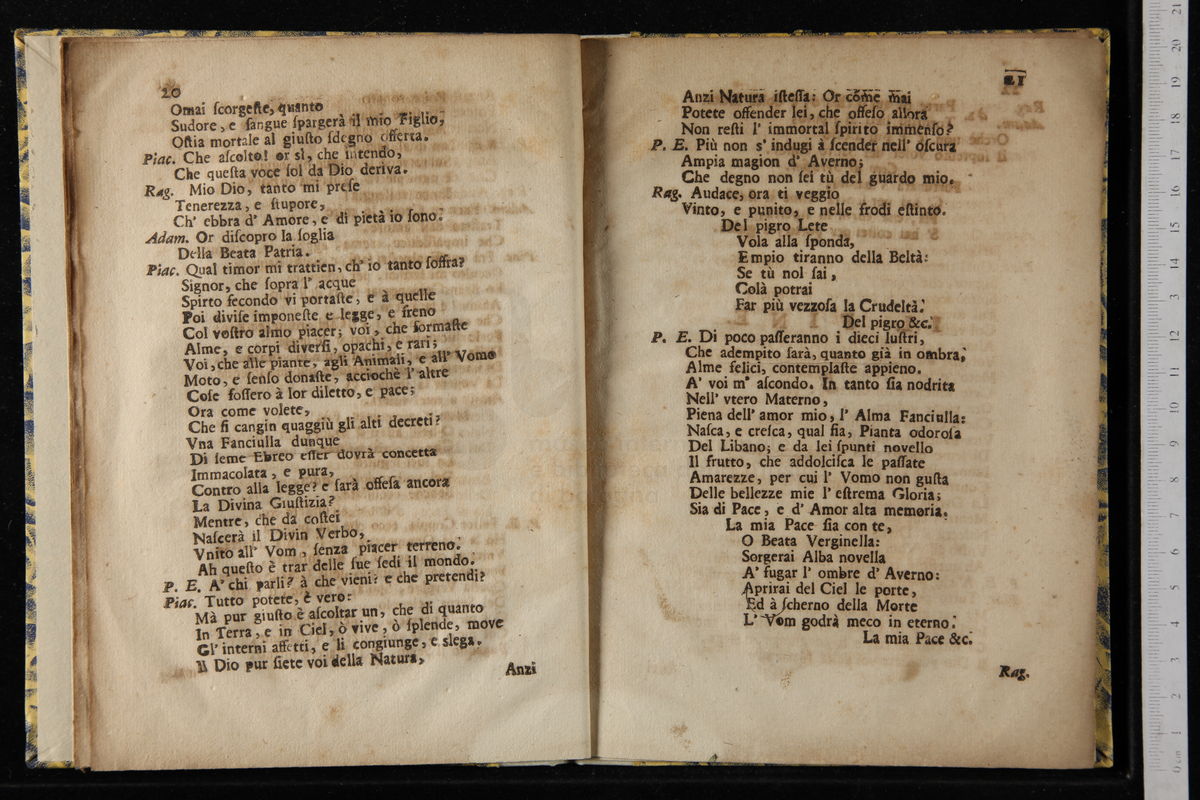 20
Omai ſcorgeſte, quanto
Sudore, e ſangue ſpargerà il mio Figlio,
Oſtia mortale al giuſto ſdegno offerta.
Piac. Che aſcolto! or sì, che intendo,
Che queſta voce ſol da Dio deriva.
Rag. Mio Dio, tanto mi preſe
Tenerezza, e ſtupore,
Ch' ebbra d' Amore, e di pietà io ſono.
Adam. Or diſcopro la ſoglia
Della Beata Patria.
Piac. Qual timor mi trattien, ch' io tanto ſoffra?
Signor, che ſopra l' acque
Spirto fecondo vi portaſte, e à quelle
Poi diviſe imponeſte e legge, e freno
Col voſtro almo piacer; voi, che formaſte
Alme, e corpi diverſi, opachi, e rari;
Voi, che alle piante, agli Animali, e all' Vomo
Moto, e ſenſo donaſte, acciochè l' altre
Coſe foſſero à lor diletto, e pace;
Ora come volete,
Che ſi cangin quaggiù gli alti decreti?
Vna Fanciulla dunque
Di ſeme Ebreo eſſer dovrà concetta
Immacolata, e pura,
Contro alla legge? e ſarà offeſa ancora
La Divina Giuſtizia?
Mentre, che da coſtei
Naſcerà il Divin Verbo,
Vnito all' Vom, ſenza piacer terreno.
Ah queſto è trar delle ſue ſedi il mondo.
P. E. A' chi parli? à che vieni? e che pretendi?
Piac. Tutto potete, è vero:
Mà pur giuſto è aſcoltar un, che di quanto
In Terra, e in Ciel, ò vive, ò ſplende, move
Gl' interni affetti, e li congiunge, e slega.
Il Dio pur ſiete voi della Natura,
Anzi
21
Anzi Natura iſteſſa: Or come mai
Potete offender lei, che offeſo allora
Non reſti l' immortal ſpirito immenſo?
P. E. Più non s' indugi à ſcender nell' oſcura
Ampia magion d' Averno;
Che degno non ſei tù del guardo mio.
Rag. Audace, ora ti veggio
Vinto, e punito, e nelle frodi eſtinto.
Del pigro Lete
Vola alla ſponda,
Empio tiranno della Beltà:
Se tù nol ſai,
Colà potrai
Far più vezzoſa la Crudeltà.
Del pigro &c.
P. E. Di poco paſſeranno i dieci luſtri,
Che adempito ſarà, quanto già in ombra,
Alme felici, contemplaſte appieno.
A' voi m' aſcondo. In tanto ſia nodrita
Nell' vtero Materno,
Piena dell' amor mio, l' Alma Fanciulla:
Naſca, e creſca, qual ſia, Pianta odoroſa
Del Libano; e da lei ſpunti novello
Il frutto, che addolciſca le paſſate
Amarezze, per cui l' Vomo non guſta
Delle bellezze mie l' eſtrema Gloria;
Sia di Pace, e d' Amor alta memoria.
La mia Pace ſia con te,
O Beata Verginella:
Sorgerai Alba novella
A' fugar l' ombre d' Averno:
Aprirai del Ciel le porte,
Ed à ſcherno della Morte
L' Vom godrà meco in eterno.
La mia Pace &c.
Rag.